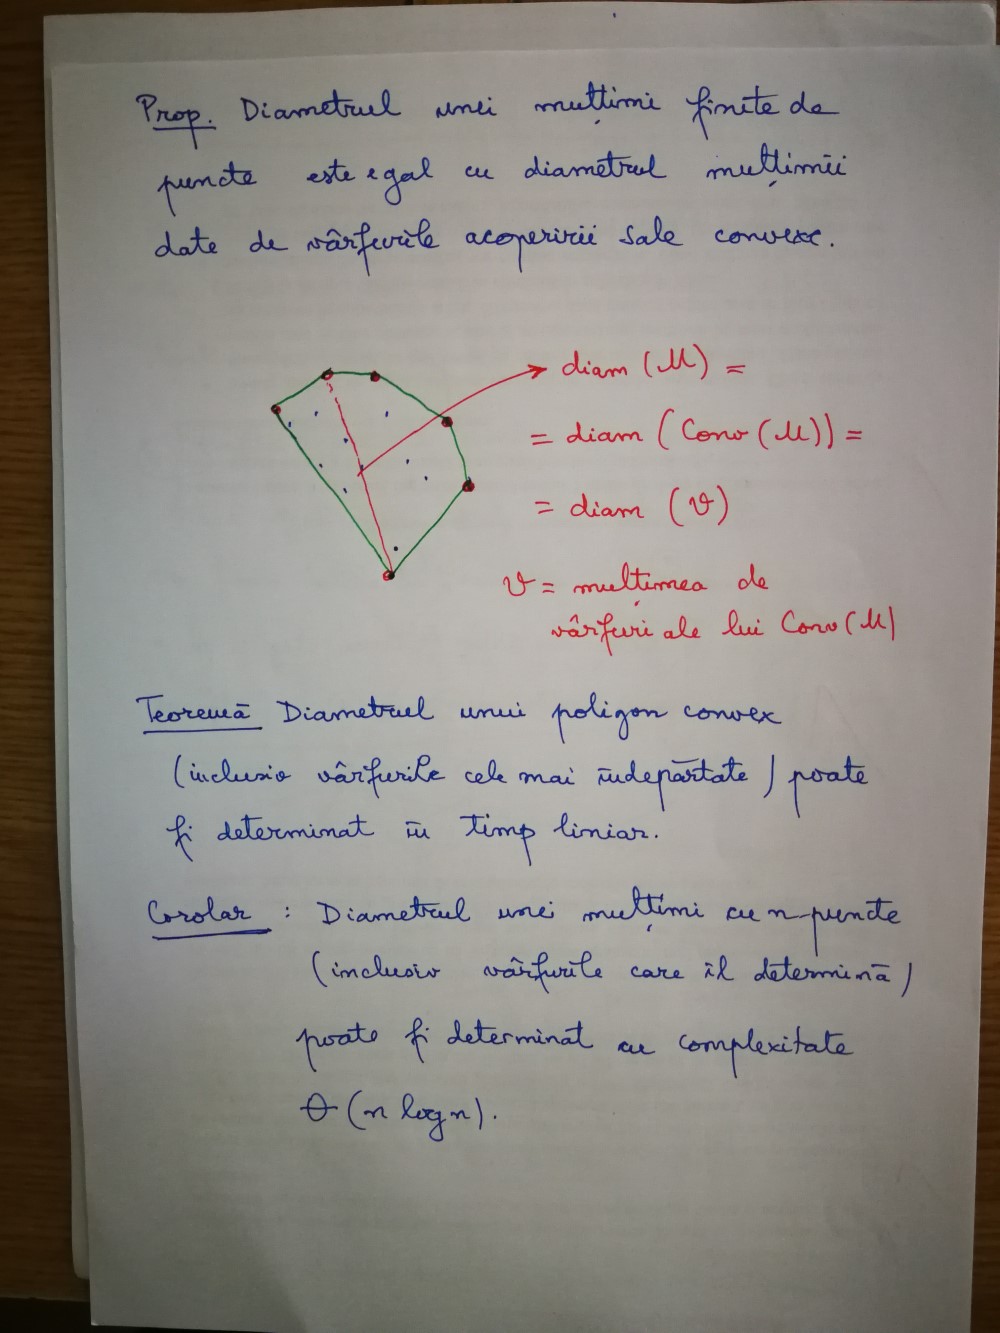 Prop. Diametrul unei mulțimi finite de
puncte este egal cu diametrul mulțimii
date de vârfurile acoperirii sale convexe.
diam (M) =
= diam (Conv (M)) =
= diam (V)
V = mulțimea de
vârfuri ale lui Conv (M)
Teoremă Diametrul unui poligon convex
(inclusiv vârfurile cele mai îndepărtate) poate
fi determinat în timp liniar.
Corolar : Diametrul unei mulțimi cu n puncte
(inclusiv vârfurile care îl determină)
poate fi determinat cu complexitate
Θ (n log n).